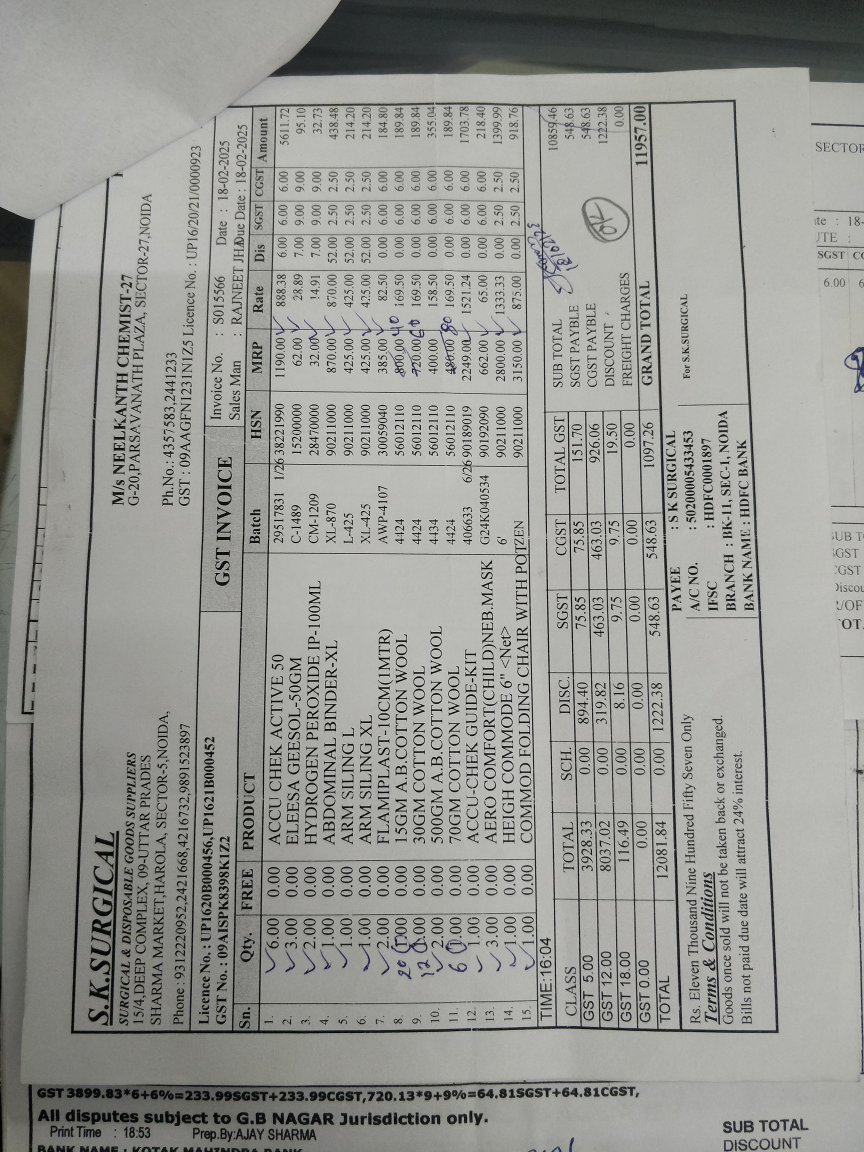 S.K.SURGICAL
SURGICAL & DISPOSABLE GOODS SUPPLIERS
15/4,DEEP COMPLEX, 09-UTTAR PRADES
SHARMA MARKET,HAROLA, SECTOR-5,NOIDA,
Phone : 9312220952,2421668,4216732,9891523897
M/s NEELKANTH CHEMIST-27
G-20,PARSAVANATH PLAZA, SECTOR-27,NOIDA
Ph.No.: 4357583,2441233
GST : 09AAGFN1231N1Z5 Licence No.: UP16/20/21/0000923
Licence No.: UP1620B000456,UP1621B000452
GST No. : 09AISPK8398K1Z2
GST INVOICE
Invoice No. : S015566 Date : 18-02-2025
Sales Man : RAJNEET JHA Due Date : 18-02-2025
Sn. Qty. FREE PRODUCT Batch HSN MRP Rate Dis SGST CGST Amount
1. 6.00 0.00 ACCU CHEK ACTIVE 50 29517831 1/26 38221990 1190.00 888.38 6.00 6.00 6.00 5611.72
2. 3.00 0.00 ELEESA GEESOL-50GM C-1489 15200000 62.00 28.89 7.00 9.00 9.00 95.10
3. 2.00 0.00 HYDROGEN PEROXIDE IP-100ML CM-1209 28470000 32.00 14.91 7.00 9.00 9.00 32.73
4. 1.00 0.00 ABDOMINAL BINDER-XL XL-870 90211000 870.00 870.00 52.00 2.50 2.50 438.48
5. 1.00 0.00 ARM SILING L L-425 90211000 425.00 425.00 52.00 2.50 2.50 214.20
6. 1.00 0.00 ARM SILING XL XL-425 90211000 425.00 425.00 52.00 2.50 2.50 214.20
7. 2.00 0.00 FLAMIPLAST-10CM(1MTR) AWP-4107 30059040 385.00 82.50 0.00 6.00 6.00 184.80
8. 20 1.00 0.00 15GM A.B.COTTON WOOL 4424 56012110 800.00 40 169.50 0.00 6.00 6.00 189.84
9. 12 1.00 0.00 30GM COTTON WOOL 4424 56012110 720.00 60 169.50 0.00 6.00 6.00 189.84
10. 2.00 0.00 500GM A.B.COTTON WOOL 4434 56012110 400.00 158.50 0.00 6.00 6.00 355.04
11. 6 1.00 0.00 70GM COTTON WOOL 4424 56012110 480.00 80 169.50 0.00 6.00 6.00 189.84
12. 1.00 0.00 ACCU-CHEK GUIDE-KIT 406633 6/26 90189019 2249.00 1521.24 0.00 6.00 6.00 1703.78
13. 3.00 0.00 AERO COMFORT(CHILD)NEB.MASK G24K040534 90192090 662.00 65.00 0.00 6.00 6.00 218.40
14. 1.00 0.00 HEIGH COMMODE 6" <Net> 6' 90211000 2800.00 1333.33 0.00 2.50 2.50 1399.99
15. 1.00 0.00 COMMOD FOLDING CHAIR WITH POTZEN 90211000 3150.00 875.00 0.00 2.50 2.50 918.76
TIME:16:04
CLASS TOTAL SCH. DISC. SGST CGST TOTAL GST
GST 5.00 3928.33 0.00 894.40 75.85 75.85 151.70
GST 12.00 8037.02 0.00 319.82 463.03 463.03 926.06
GST 18.00 116.49 0.00 8.16 9.75 9.75 19.50
GST 0.00 0.00 0.00 0.00 0.00 0.00 0.00
TOTAL 12081.84 0.00 1222.38 548.63 548.63 1097.26
SUB TOTAL 10859.46
SGST PAYBLE 548.63
CGST PAYBLE 548.63
DISCOUNT 1222.38
FREIGHT CHARGES 0.00
GRAND TOTAL 11957.00
OK
Rs. Eleven Thousand Nine Hundred Fifty Seven Only
Terms & Conditions
Goods once sold will not be taken back or exchanged.
Bills not paid due date will attract 24% interest.
PAYEE : S K SURGICAL
A/C NO. : 50200005433453
IFSC : HDFC0001897
BRANCH : BK-11, SEC-1, NOIDA
BANK NAME : HDFC BANK
For S.K.SURGICAL
GST 3899.83*6+6%=233.99SGST+233.99CGST,720.13*9+9%=64.81SGST+64.81CGST,
All disputes subject to G.B NAGAR Jurisdiction only.
Print Time : 18:53 Prep.By:AJAY SHARMA
BANK NAME : KOTAK MAHINDRA BANK
SUB TOTAL
DISCOUNT
SECTOR
SGST
6.00